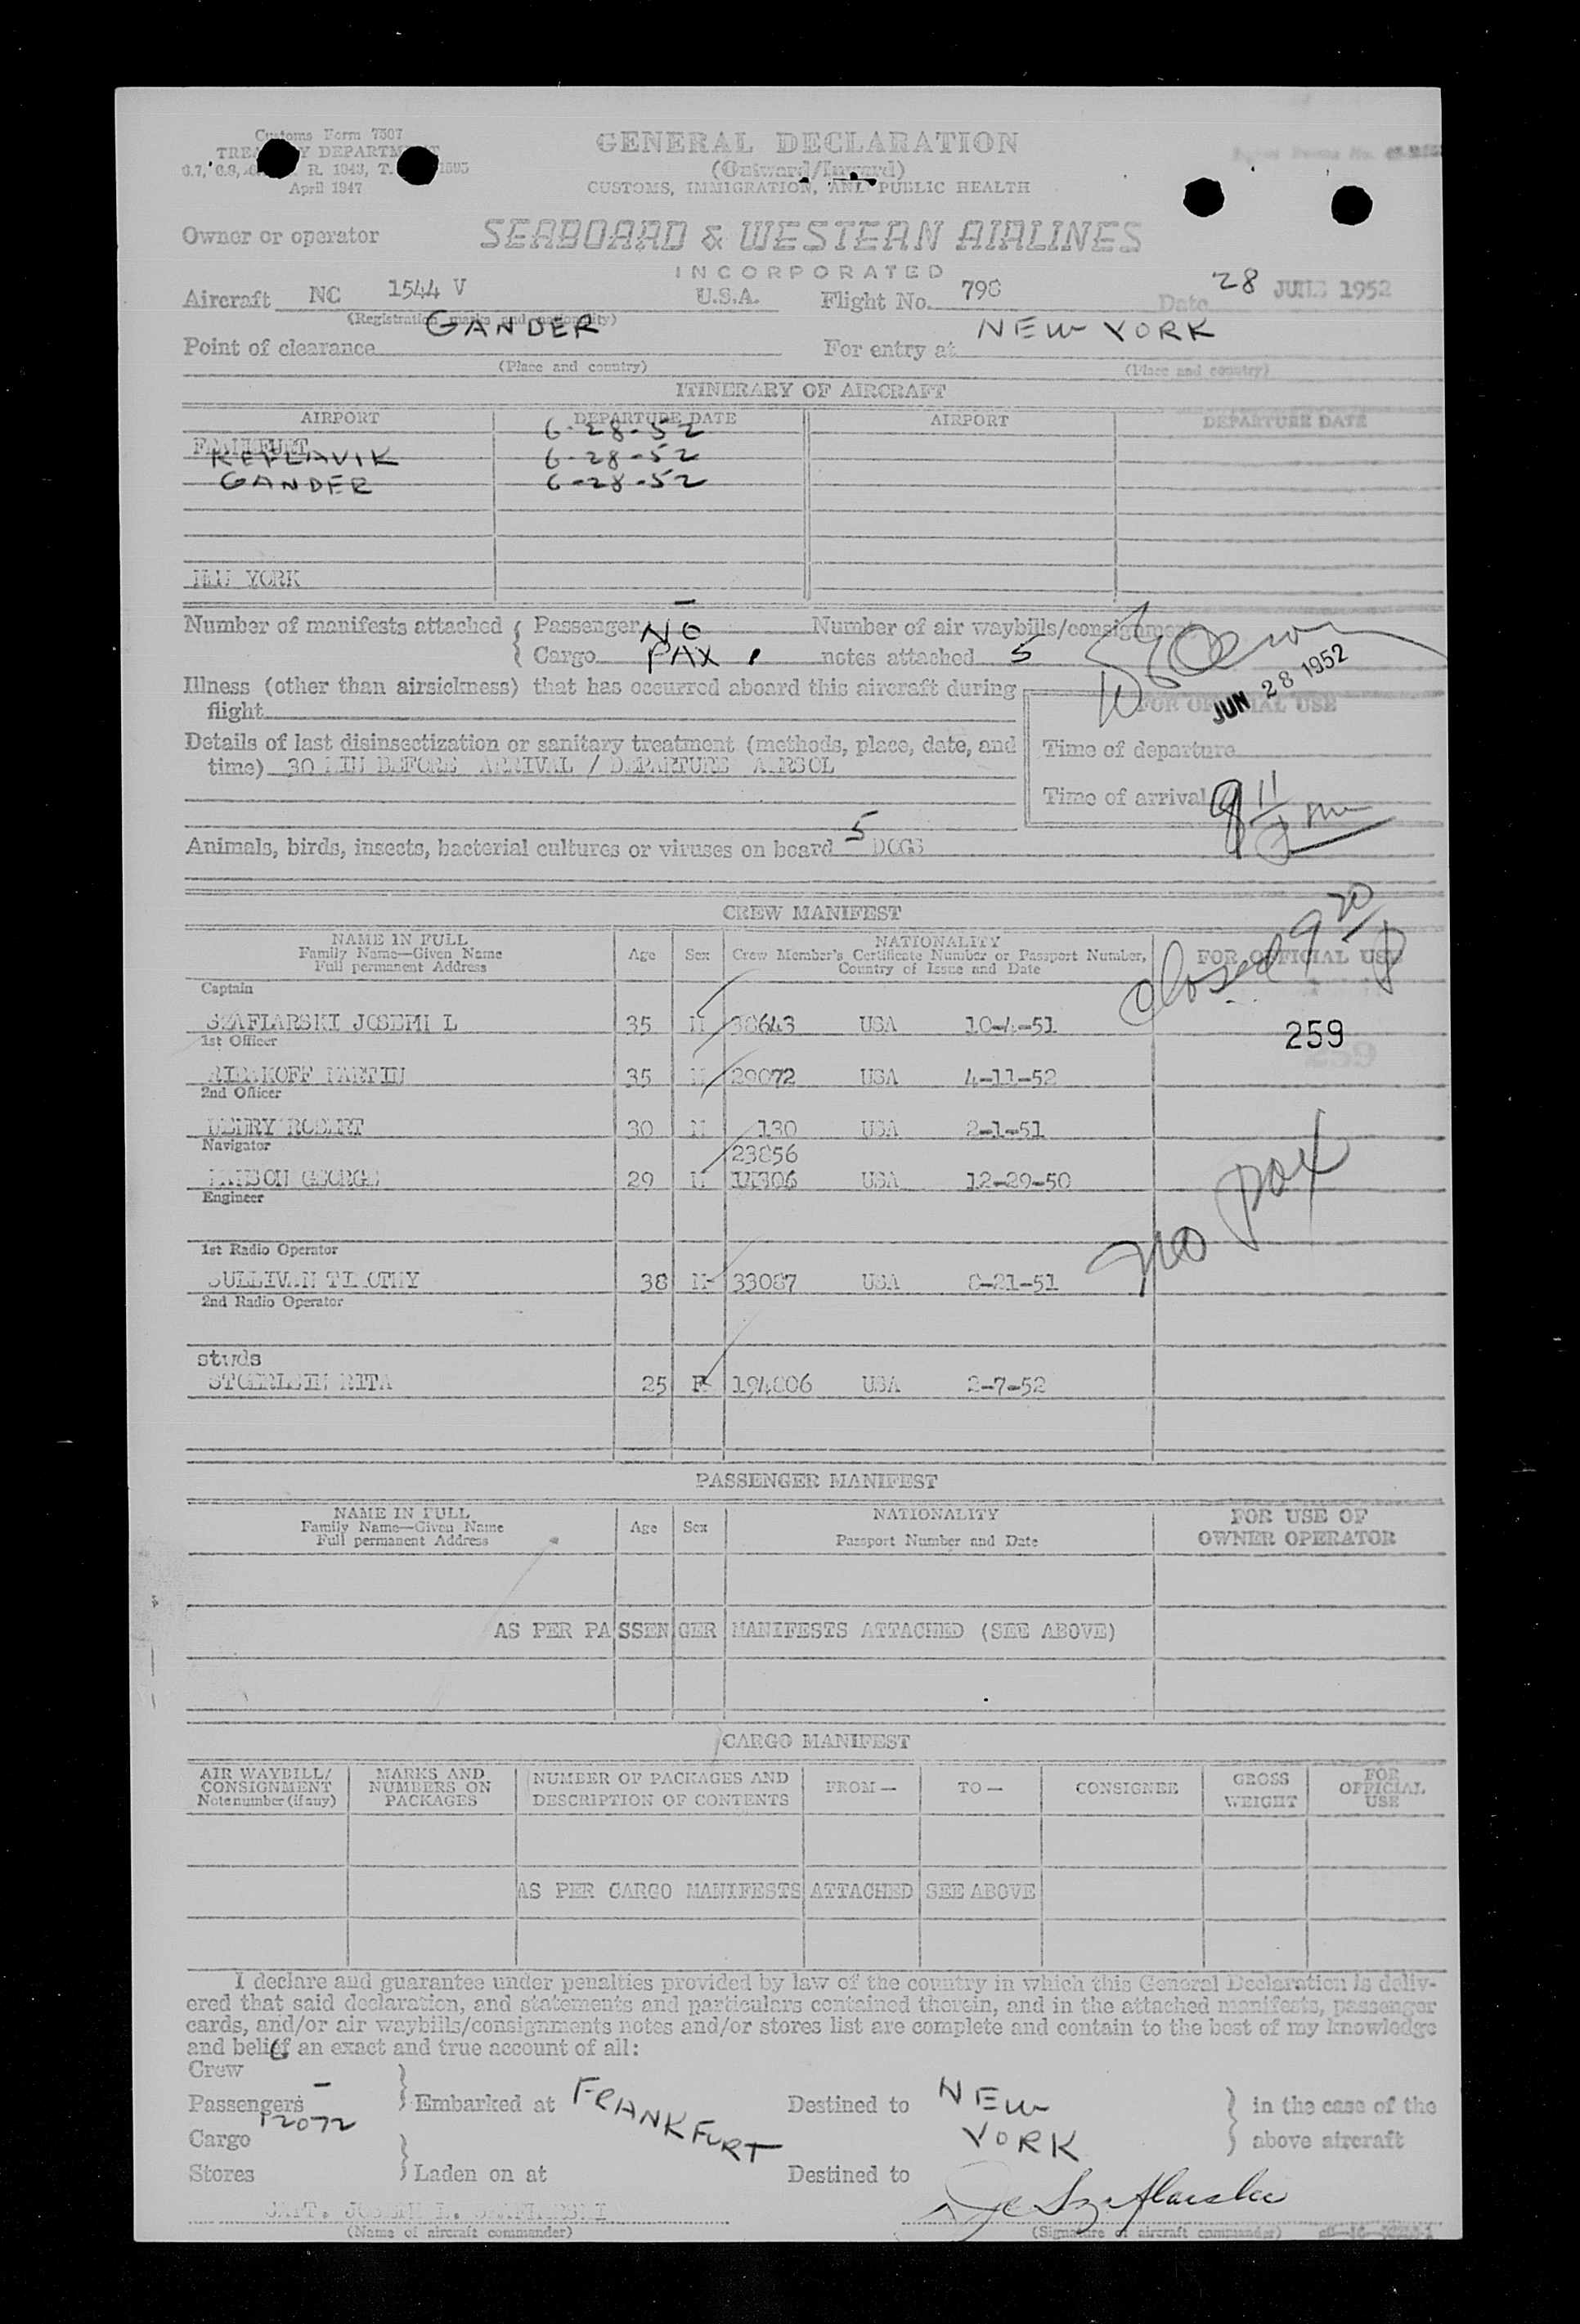 Customs Form 7507
TREASURY DEPARTMENT
April 1947
GENERAL DECLARATION
(Outward/Inward)
CUSTOMS, IMMIGRATION, AND PUBLIC HEALTH
Owner or operator SEABOARD & WESTERN AIRLINES
INCORPORATED
Aircraft NC 1544 V U.S.A. Flight No. 798 Date 28 JUNE 1952
(Registration marks and nationality)
Point of clearance GANDER For entry at NEW YORK
(Place and country) (Place and country)
ITINERARY OF AIRCRAFT
AIRPORT DEPARTURE DATE AIRPORT DEPARTURE DATE
FRANKFURT 6-28-52
KEFLAVIK 6-28-52
GANDER 6-28-52
NEW YORK
Number of manifests attached { Passenger NO Number of air waybills/consignment
Cargo PAX notes attached 5
JUN 28 1952
Illness (other than airsickness) that has occurred aboard this aircraft during
flight
FOR OFFICIAL USE
Details of last disinsectization or sanitary treatment (methods, place, date, and
time) 30 MIN BEFORE ARRIVAL / DEPARTURE AIRSOL
Time of departure
Time of arrival 9 11
Animals, birds, insects, bacterial cultures or viruses on board 5 DOGS
CREW MANIFEST
NAME IN FULL
Family Name—Given Name
Full permanent Address
Age Sex NATIONALITY
Crew Member's Certificate Number or Passport Number,
Country of Issue and Date
FOR OFFICIAL USE
closed 9 20
Captain
SZAFLARSKI JOSEPH L 35 M 38643 USA 10-4-51
259
1st Officer
MARTIN 35 M 29072 USA 4-11-52
2nd Officer
HENRY ROBERT 30 M 130 USA 2-1-51
Navigator
23856
GEORGE 29 M 14306 USA 12-29-50
Engineer
no pax
1st Radio Operator
SULLIVAN TIMOTHY 38 M 33087 USA 8-21-51
2nd Radio Operator
studs
RITA 25 F 194806 USA 2-7-52
PASSENGER MANIFEST
NAME IN FULL
Family Name—Given Name
Full permanent Address
Age Sex NATIONALITY
Passport Number and Date
FOR USE OF
OWNER OPERATOR
AS PER PASSENGER MANIFESTS ATTACHED (SEE ABOVE)
CARGO MANIFEST
AIR WAYBILL/
CONSIGNMENT
Note number (if any)
MARKS AND
NUMBERS ON
PACKAGES
NUMBER OF PACKAGES AND
DESCRIPTION OF CONTENTS
FROM— TO— CONSIGNEE
GROSS
WEIGHT
FOR
OFFICIAL
USE
AS PER CARGO MANIFESTS ATTACHED SEE ABOVE
I declare and guarantee under penalties provided by law of the country in which this General Declaration is deliv-
ered that said declaration, and statements and particulars contained therein, and in the attached manifests, passenger
cards, and/or air waybills/consignments notes and/or stores list are complete and contain to the best of my knowledge
and belief an exact and true account of all:
Crew 6
Passengers — } Embarked at FRANKFURT Destined to NEW YORK } in the case of the
Cargo 12072 above aircraft
Stores } Laden on at Destined to
CAPT. JOSEPH L. SZAFLARSKI Joe Szaflarski
(Name of aircraft commander) (Signature of aircraft commander)